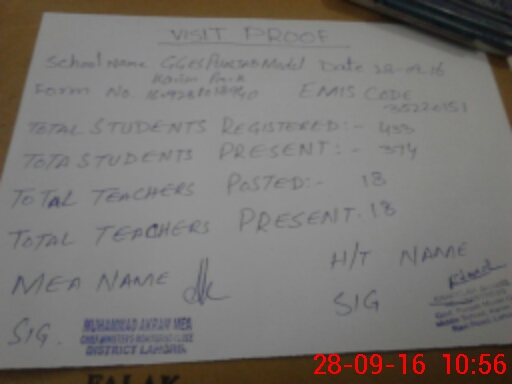 VISIT PROOF
School Name GGES Punjab Model Date 28-09-16
Karim Park
Form No. EMIS CODE
35220151
TOTAL STUDENTS REGISTERED:- 433
TOTA STUDENTS PRESENT:- 374
TOTAL TEACHERS POSTED:- 18
TOTAL TEACHERS PRESENT. 18
MEA NAME
H/T NAME
SIG
SIG.
MUHAMMAD AKRAM MEA
DISTRICT LAHORE.
28-09-16 10:56
FALAK